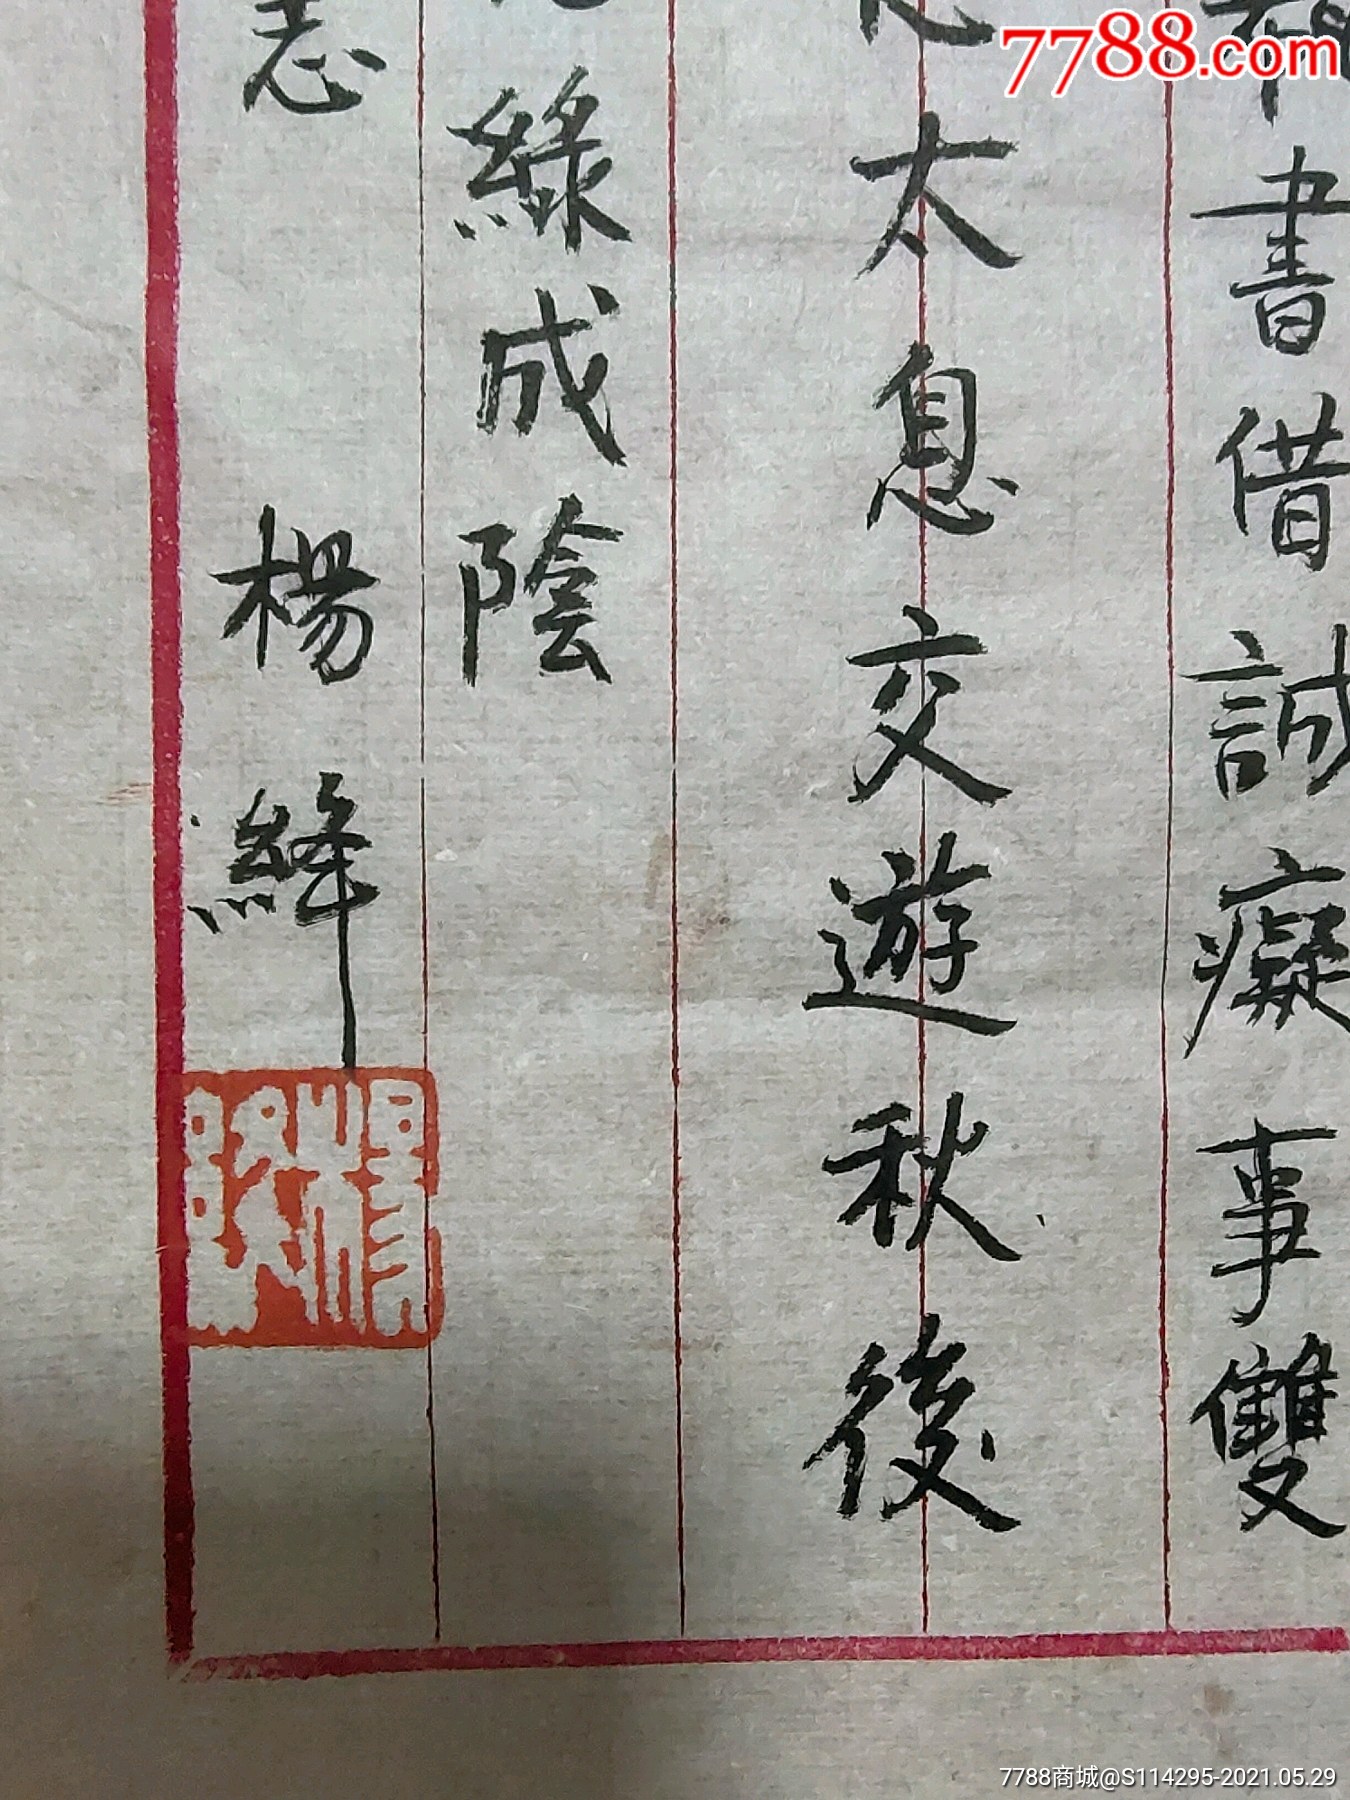 7788.com
書借誠癡事雙
太息交遊秋後
綠成陰
志 楊絳
7788商城@S114295-2021.05.29